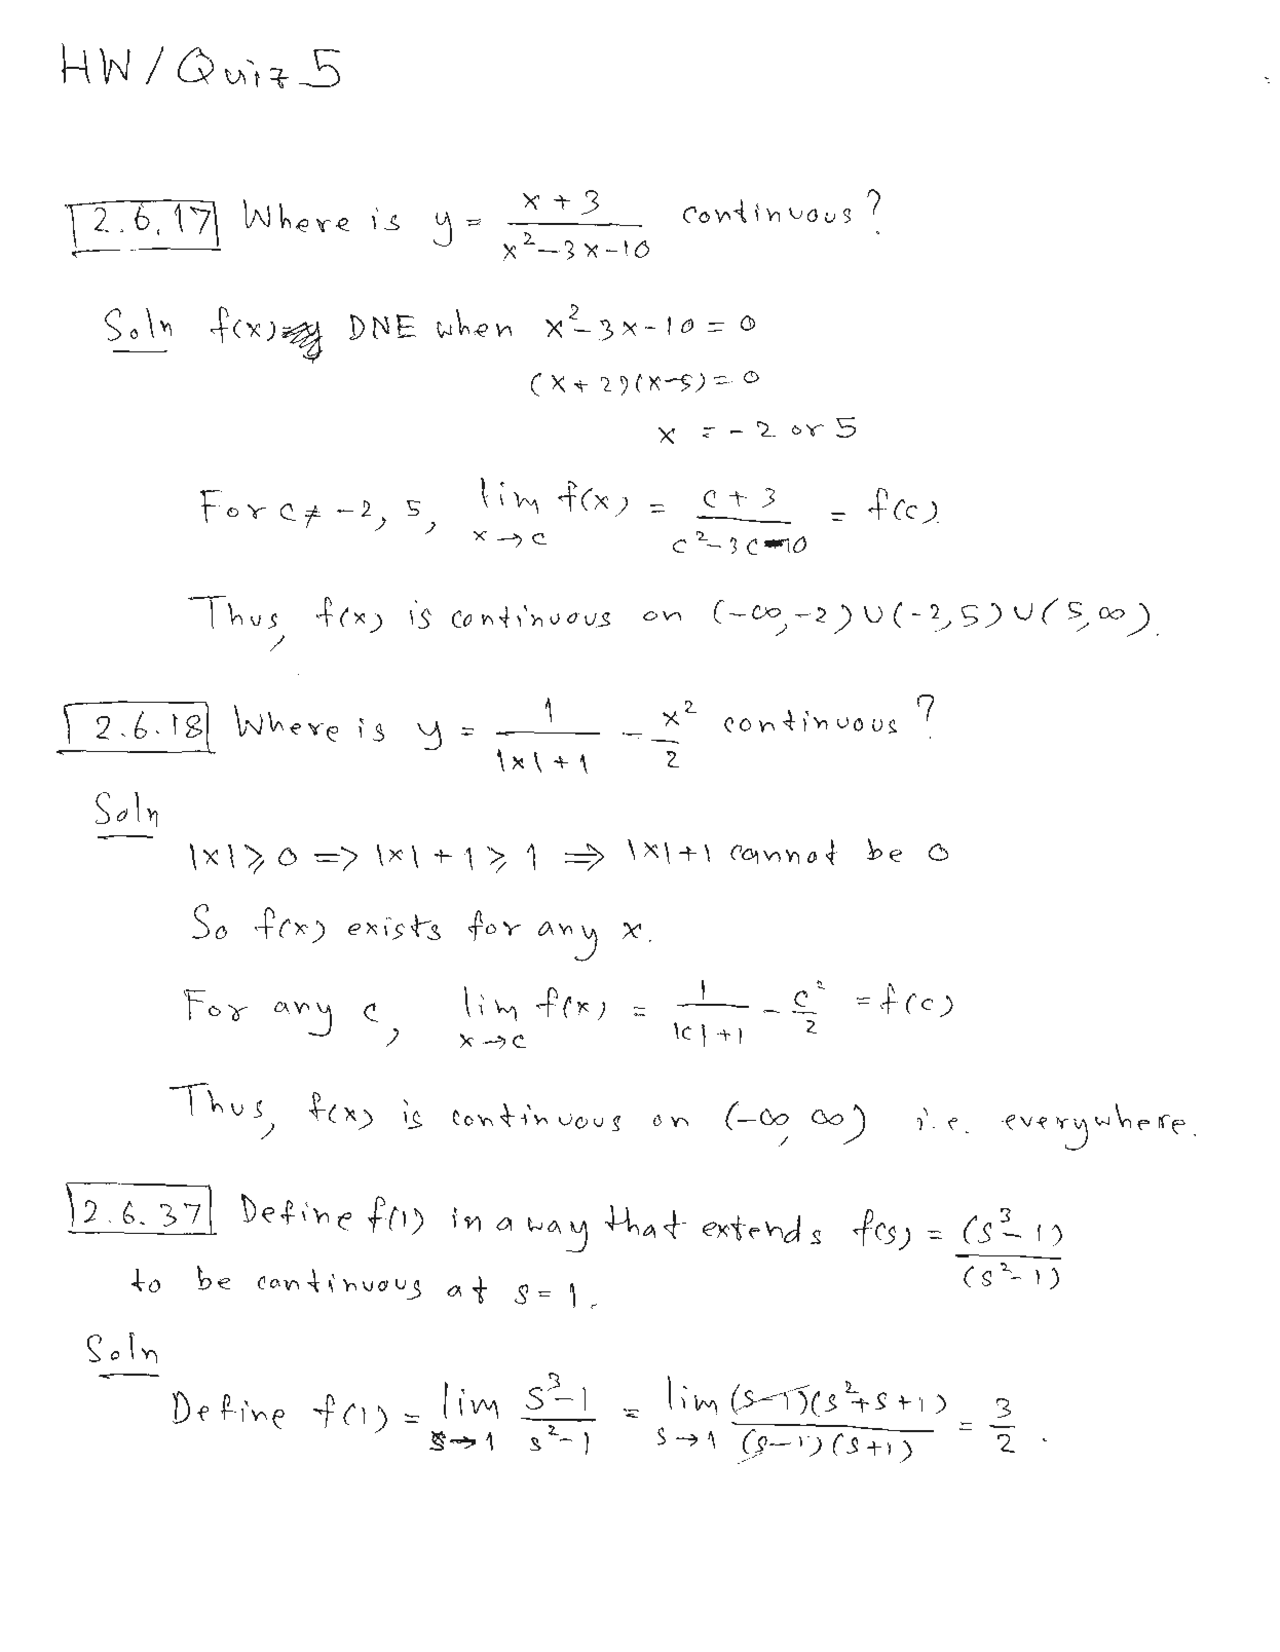 HW/Quiz 5
2.6.17 Where is y = (x+3)/(x²-3x-10) continuous?
Soln f(x) DNE when x²-3x-10=0
(x+2)(x-5)=0
x = -2 or 5
For c≠-2, 5, lim x→c f(x) = (c+3)/(c²-3c-10) = f(c)
Thus, f(x) is continuous on (-∞,-2)∪(-2,5)∪(5,∞).
2.6.18 Where is y = 1/(|x|+1) - x²/2 continuous?
Soln
|x|≥0 => |x|+1≥1 => |x|+1 cannot be 0
So f(x) exists for any x.
For any c, lim x→c f(x) = 1/(|c|+1) - c²/2 = f(c)
Thus, f(x) is continuous on (-∞,∞) i.e. everywhere.
2.6.37 Define f(1) in a way that extends f(s) = (s³-1)/(s²-1)
to be continuous at s=1.
Soln
Define f(1) = lim s→1 (s³-1)/(s²-1) = lim s→1 (s-1)(s²+s+1)/(s-1)(s+1) = 3/2.